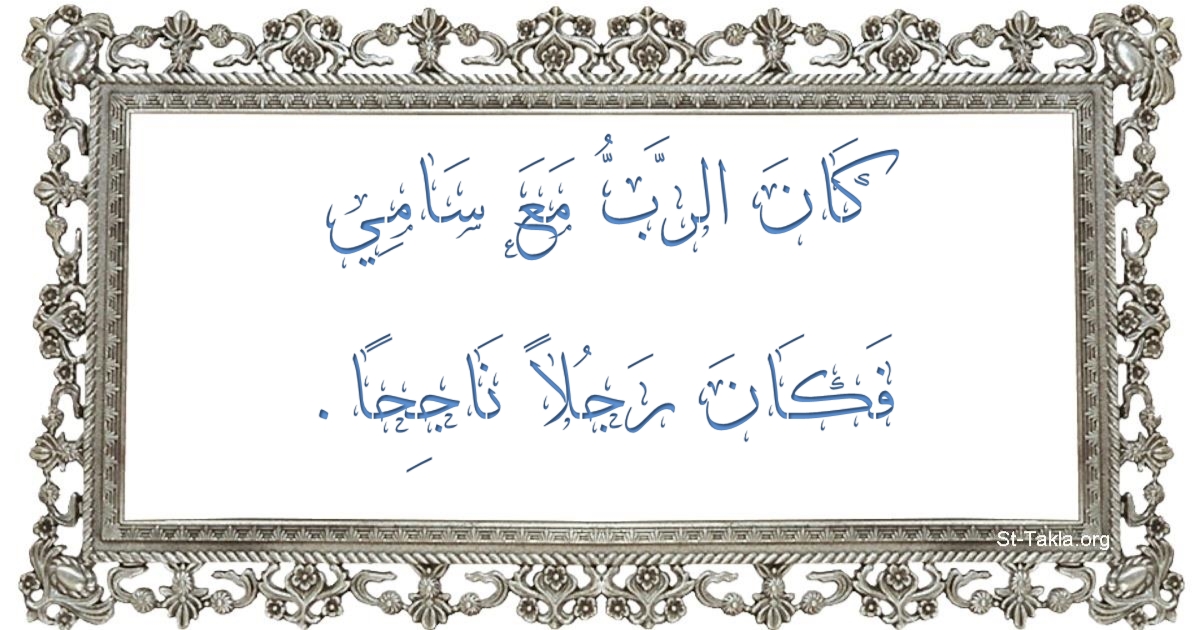 كَانَ الرَّبُّ مَعَ سَامِي
فَكَانَ رَجُلاً نَاجِحًا .
St-Takla.org